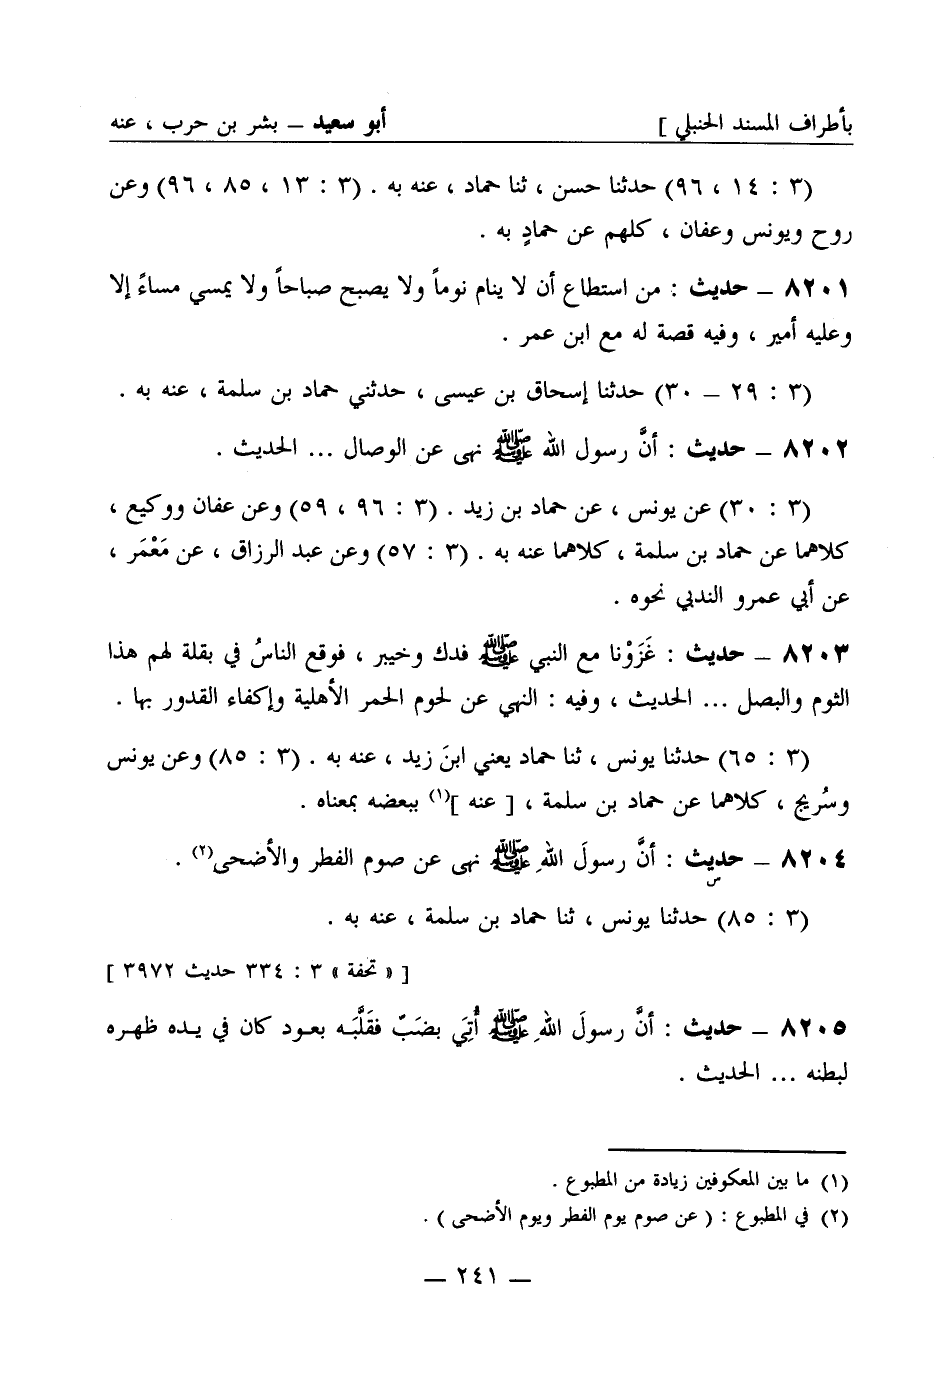 بأطراف المسند الحنبلي ] أبو سعيد – بشر بن حرب ، عنه
(٣ : ١٤ ، ٩٦) حدثنا حسن ، ثنا حماد ، عنه به . (٣ : ١٣ ، ٨٥ ، ٩٦) وعن
روح ويونس وعفان ، كلهم عن حمادٍ به .
٨٢٠١ – حديث : من استطاع أن لا ينام نوماً ولا يصبح صباحاً ولا يمسي مساءً إلا
وعليه أمير ، وفيه قصة له مع ابن عمر .
(٣ : ٢٩ – ٣٠) حدثنا إسحاق بن عيسى ، حدثني حماد بن سلمة ، عنه به .
٨٢٠٢ – حديث : أنَّ رسول الله ﷺ نهى عن الوصال ... الحديث .
(٣ : ٣٠) عن يونس ، عن حماد بن زيد . (٣ : ٩٦ ، ٥٩) وعن عفان ووكيع ،
كلاهما عن حماد بن سلمة ، كلاهما عنه به . (٣ : ٥٧) وعن عبد الرزاق ، عن مَعْمَر ،
عن أبي عمرو الندبي نحوه .
٨٢٠٣ – حديث : غَزَوْنا مع النبي ﷺ فدك وخيبر ، فوقع الناسُ في بقلة لهم هذا
الثوم والبصل ... الحديث ، وفيه : النهي عن لحوم الحمر الأهلية وإكفاء القدور بها .
(٣ : ٦٥) حدثنا يونس ، ثنا حماد يعني ابنَ زيد ، عنه به . (٣ : ٨٥) وعن يونس
وسُريج ، كلاهما عن حماد بن سلمة ، [ عنه ](١) ببعضه بمعناه .
٨٢٠٤ – حديث : أنَّ رسولَ اللهِ ﷺ نهى عن صوم الفطر والأضحى(٢) .
س
(٣ : ٨٥) حدثنا يونس ، ثنا حماد بن سلمة ، عنه به .
[ « تحفة » ٣ : ٣٣٤ حديث ٣٩٧٢ ]
٨٢٠٥ – حديث : أنَّ رسولَ اللهِ ﷺ أُتِيَ بضَبّ فقَلَّبَه بعود كان في يده ظهره
لبطنه ... الحديث .
(١) ما بين المعكوفين زيادة من المطبوع .
(٢) في المطبوع : ( عن صوم يوم الفطر ويوم الأضحى ) .
– ٢٤١ –